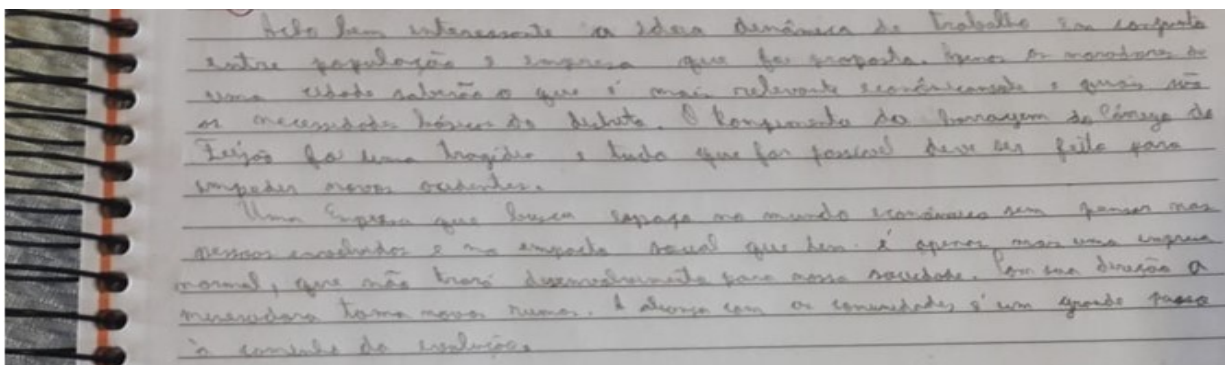 Acho bem interessante a ideia denâmica do trabalho em conjunto
entre população e empresa que foi proposta. Apenas os moradores de
uma cidade saberão o que é mais relevante econômicamente e quais são
as necessidades básicas do distrito. O Rompimento da Barragem do Córrego do
Feijão foi uma tragédia e tudo que for possível deve ser feito para
impedir novos acidentes.
Uma Empresa que busca espaço no mundo econômico sem pensar nas
pessoas envolvidas e no impacto social que tem é apenas mais uma empresa
normal, que não trará desenvolvimento para nossa sociedade. Com sua direção a
mineradora toma novos rumos. A aliança com as comunidades é um grande passo
à caminho da evolução.